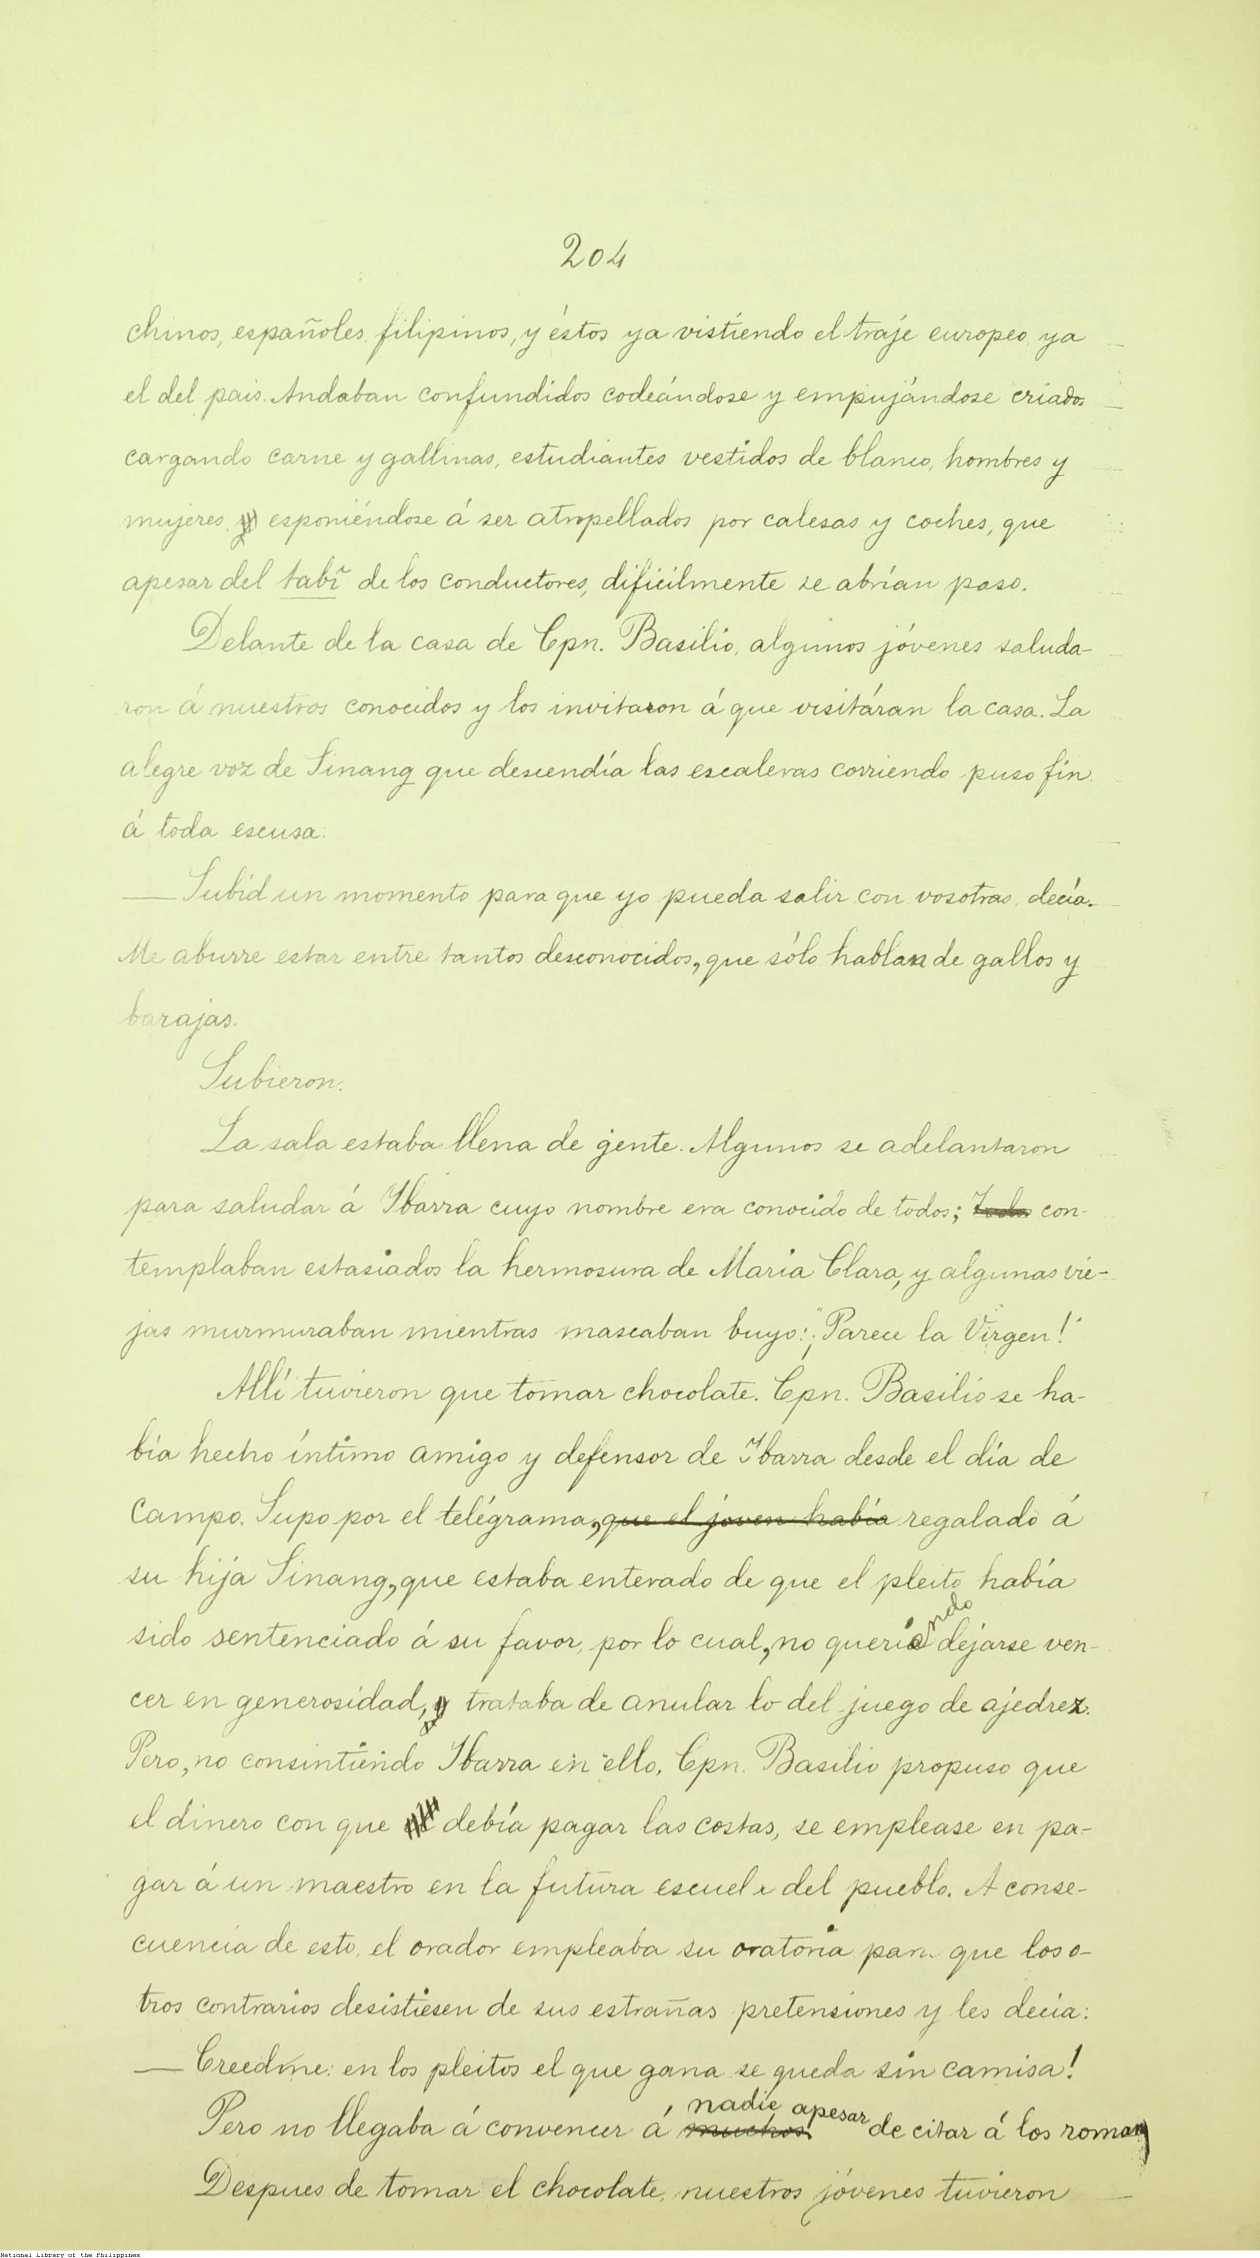 204
chinos, españoles, filipinos, y éstos ya vistiendo el traje europeo ya
el del pais. Andaban confundidos codeándose y empujándose criados
cargando carne y gallinas, estudiantes vestidos de blanco, hombres y
mujeres, esponiéndose á ser atropellados por calesas y coches, que
apesar del tabî de los conductores, dificilmente se abrían paso.
Delante de la casa de Cpn. Basilio, algunos jóvenes saluda-
ron á nuestros conocidos y los invitaron á que visitáran la casa. La
alegre voz de Sinang que descendía las escaleras corriendo puso fin
á toda escusa.
— Subid un momento para que yo pueda salir con vosotras, decía.
Me aburre estar entre tantos desconocidos, que sólo hablan de gallos y
barajas.
Subieron.
La sala estaba llena de gente. Algunos se adelantaron
para saludar á Ibarra cuyo nombre era conocido de todos; Todos con-
templaban estasiados la hermosura de Maria Clara, y algunas vie-
jas murmuraban mientras mascaban buyo: "¡Parece la Virgen!"
Allí tuvieron que tomar chocolate. Cpn. Basilio se ha-
bía hecho íntimo amigo y defensor de Ibarra desde el día de
campo. Supo por el telégrama, que el joven había regalado á
su hija Sinang, que estaba enterado de que el pleito había
sido sentenciado á su favor, por lo cual, no queriendo dejarse ven-
cer en generosidad, y trataba de anular lo del juego de ajedrez.
Pero, no consintiendo Ibarra en ello, Cpn. Basilio propuso que
el dinero con que debía pagar las costas, se emplease en pa-
gar á un maestro en la futura escuela del pueblo. A conse-
cuencia de esto, el orador empleaba su oratoria para que los o-
tros contrarios desistiesen de sus estrañas pretensiones y les decia:
— Creedme: en los pleitos el que gana se queda sin camisa!
Pero no llegaba á convencer á muchos. nadie apesar de citar á los roman
Despues de tomar el chocolate, nuestros jóvenes tuvieron
National Library of the Philippines